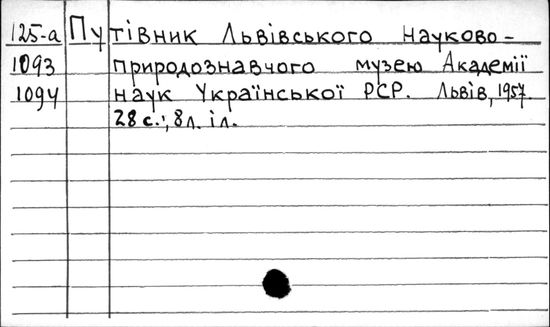 125-а Путівник Львівського Науково-
1093 природознавчого музею Академії
1094 наук Української РСР. Львів, 1957.
28 с.; 8 л. іл.